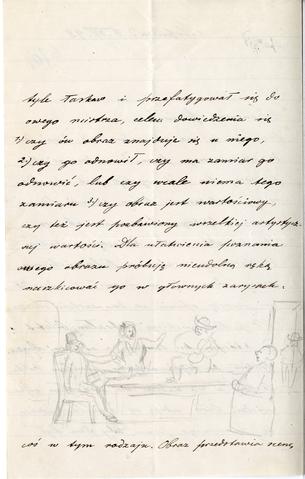 tyle łaskaw i przefatygował się do
owego mistrza, celem dowiedzenia się
1) czy ów obraz znajduje się u niego,
2) czy go odnowił, czy ma zamiar go
odnowić, lub czy wcale niema tego
zamiaru 3) czy obraz jest wartościowy,
czy też jest pozbawiony wszelkiej artystycz-
nej wartości. Dla ułatwienia poznania
owego obrazu próbuję nieudolną ręką
naszkicować go w głównych zarysach.
coś w tym rodzaju. Obraz przedstawia scenę,